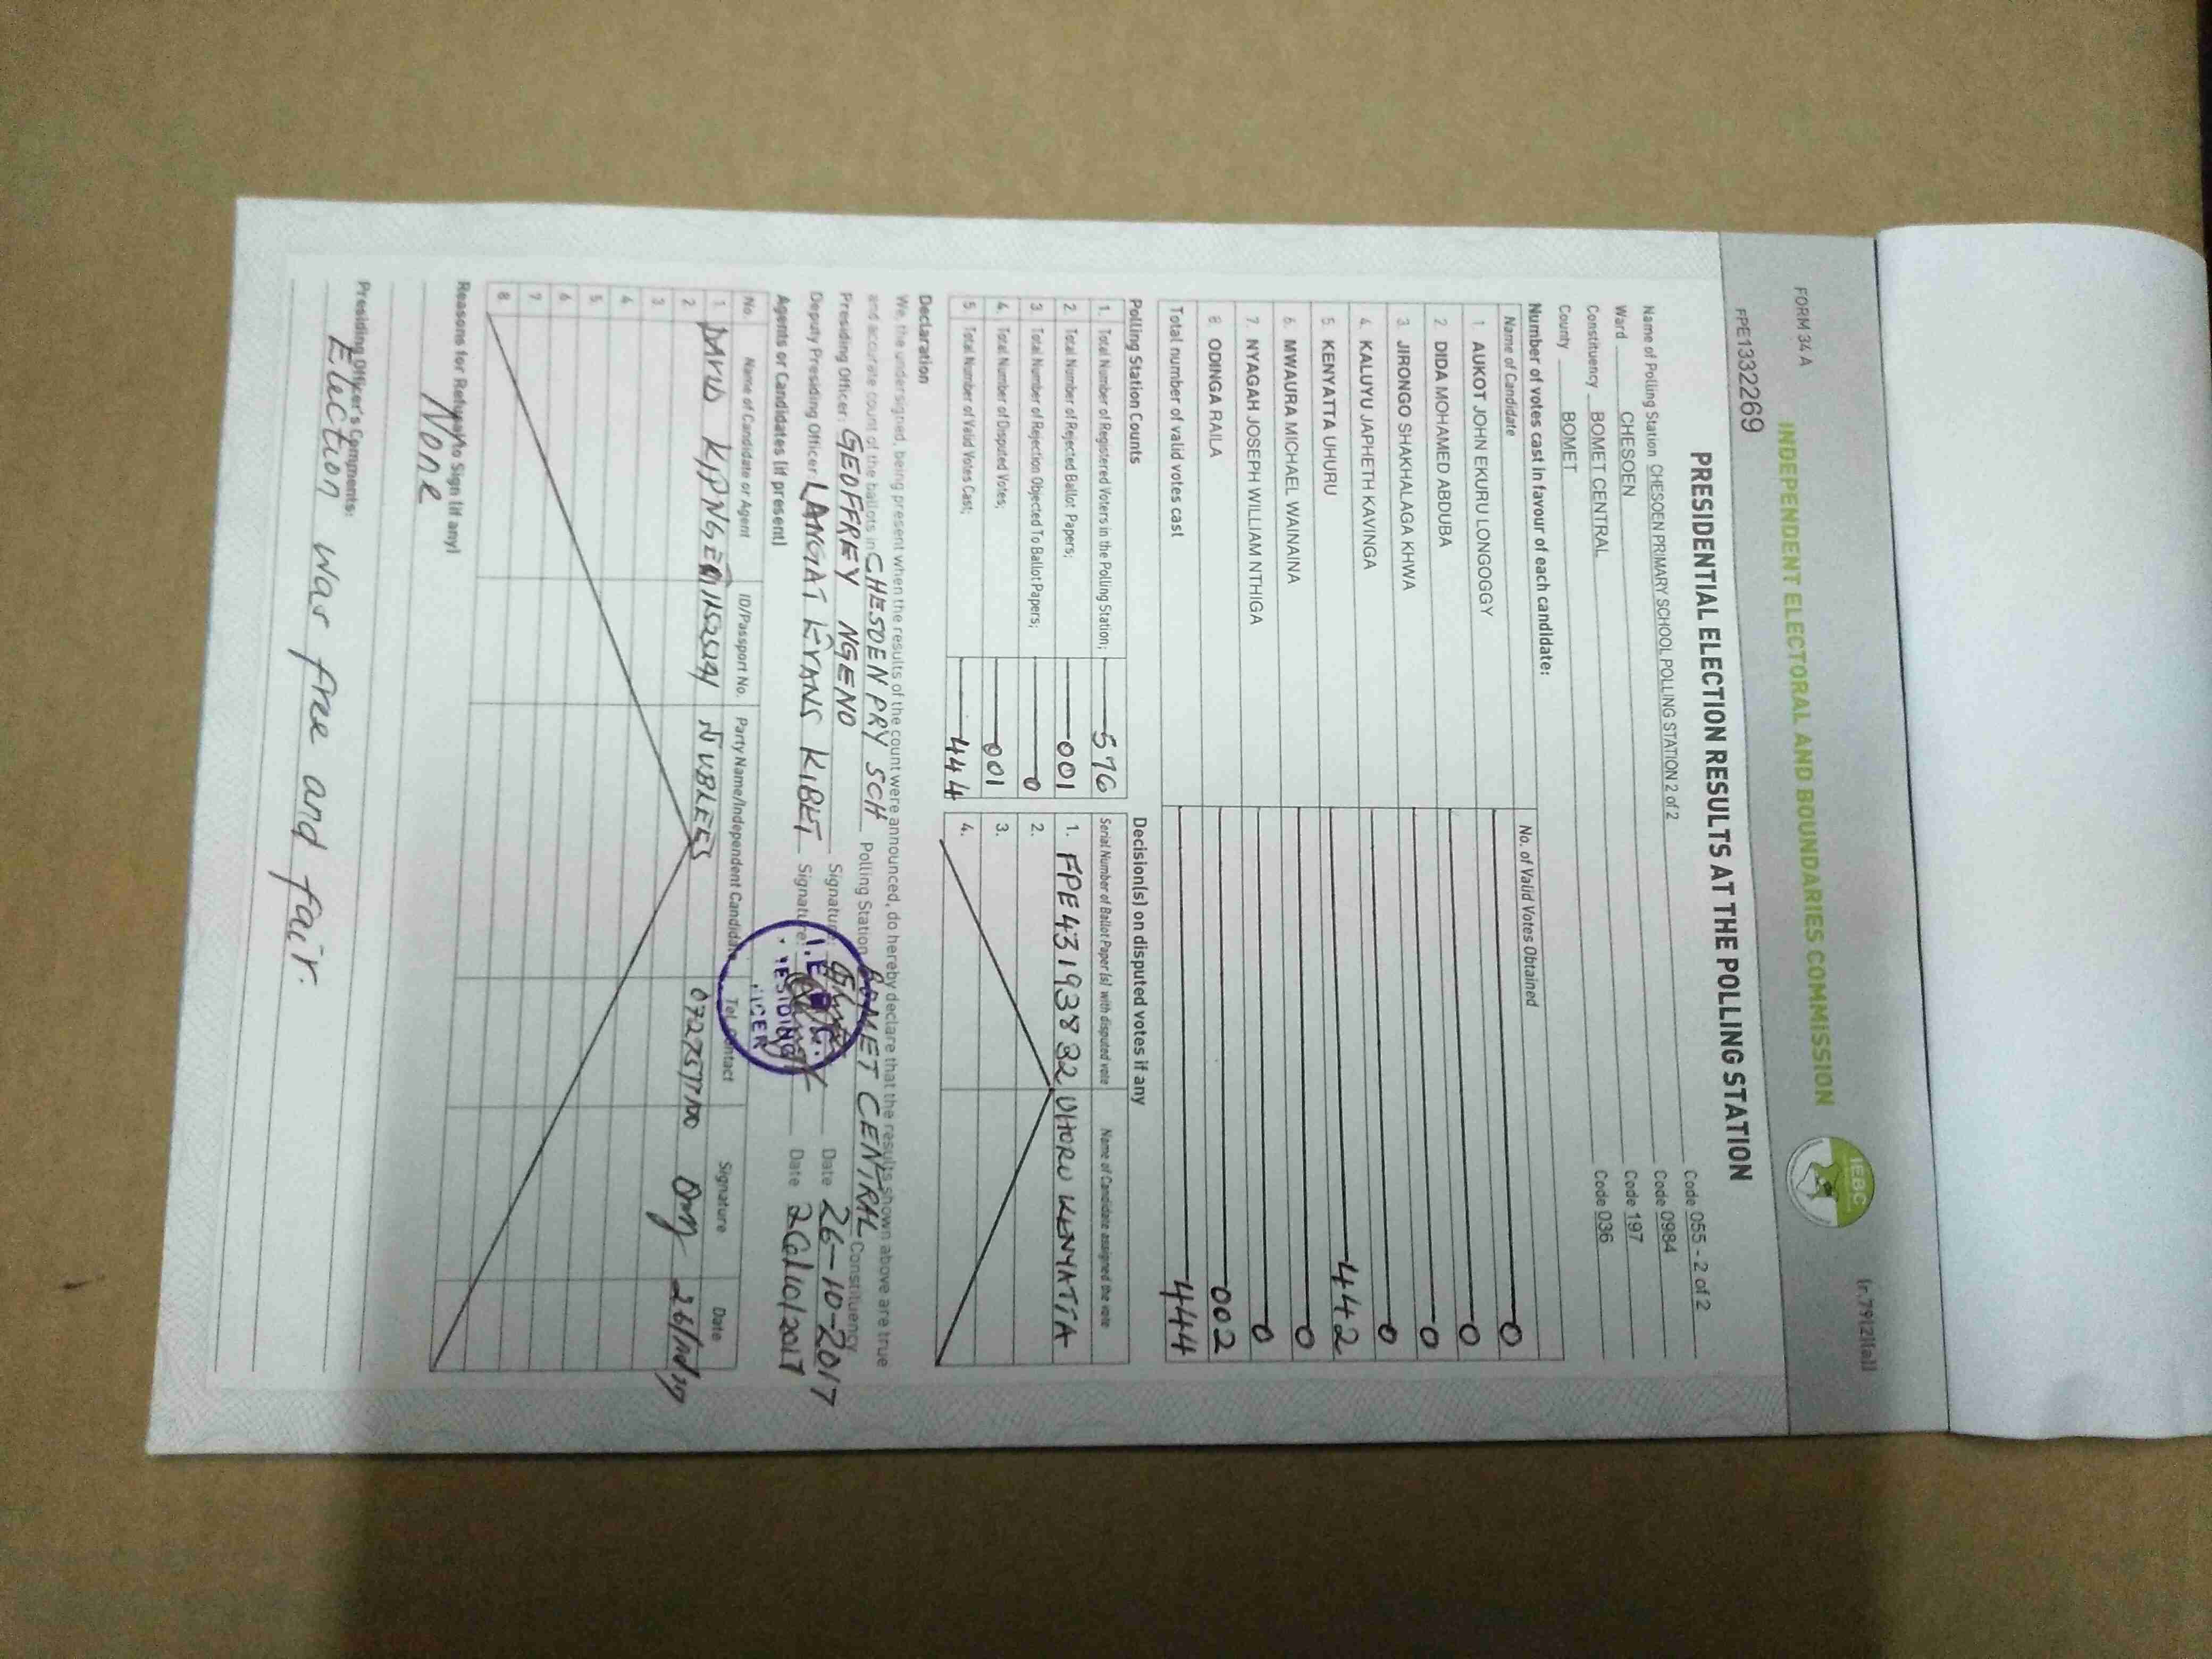 FORM 34 A
(r.79(2)(a))
INDEPENDENT ELECTORAL AND BOUNDARIES COMMISSION
IEBC
FPE1332269
PRESIDENTIAL ELECTION RESULTS AT THE POLLING STATION
Name of Polling Station CHESOEN PRIMARY SCHOOL POLLING STATION 2 of 2 Code 055 - 2 of 2
Ward CHESOEN Code 0984
Constituency BOMET CENTRAL Code 197
County BOMET Code 036
Number of votes cast in favour of each candidate:
Name of Candidate No. of Valid Votes Obtained
1 AUKOT JOHN EKURU LONGOGGY 0
2 DIDA MOHAMED ABDUBA 0
3 JIRONGO SHAKHALAGA KHWA 0
4 KALUYU JAPHETH KAVINGA 0
5 KENYATTA UHURU 442
6 MWAURA MICHAEL WAINAINA 0
7 NYAGAH JOSEPH WILLIAM NTHIGA 0
8 ODINGA RAILA 002
Total number of valid votes cast 444
Polling Station Counts Decision(s) on disputed votes if any
Serial Number of Ballot Paper(s) with disputed vote Name of Candidate assigned the vote
1. Total Number of Registered Voters in the Polling Station; 576
2. Total Number of Rejected Ballot Papers; 001
3. Total Number of Rejection Objected To Ballot Papers; 0
4. Total Number of Disputed Votes; 001
5. Total Number of Valid Votes Cast; 444
1. FPE431193832 UHURU KENYATTA
2.
3.
4.
Declaration
We, the undersigned, being present when the results of the count were announced, do hereby declare that the results shown above are true
and accurate count of the ballots in CHESOEN PRY SCH Polling Station BOMET CENTRAL Constituency
Presiding Officer: GEOFFREY NGENO Signature: Date 26-10-2017
Deputy Presiding Officer LANGAT EVANS KIBET Signature: Date 26/10/2017
I.E.B.C.
PRESIDING OFFICER
Agents or Candidates (if present)
No. Name of Candidate or Agent ID/Passport No. Party Name/Independent Candidate Tel. contact Signature Date
1 DAVID KIPNGENO JUBILEE
2
3
4
5
6
7
8
Reasons for Refusal to Sign (if any)
None
Presiding Officer's Comments:
Election was free and fair.